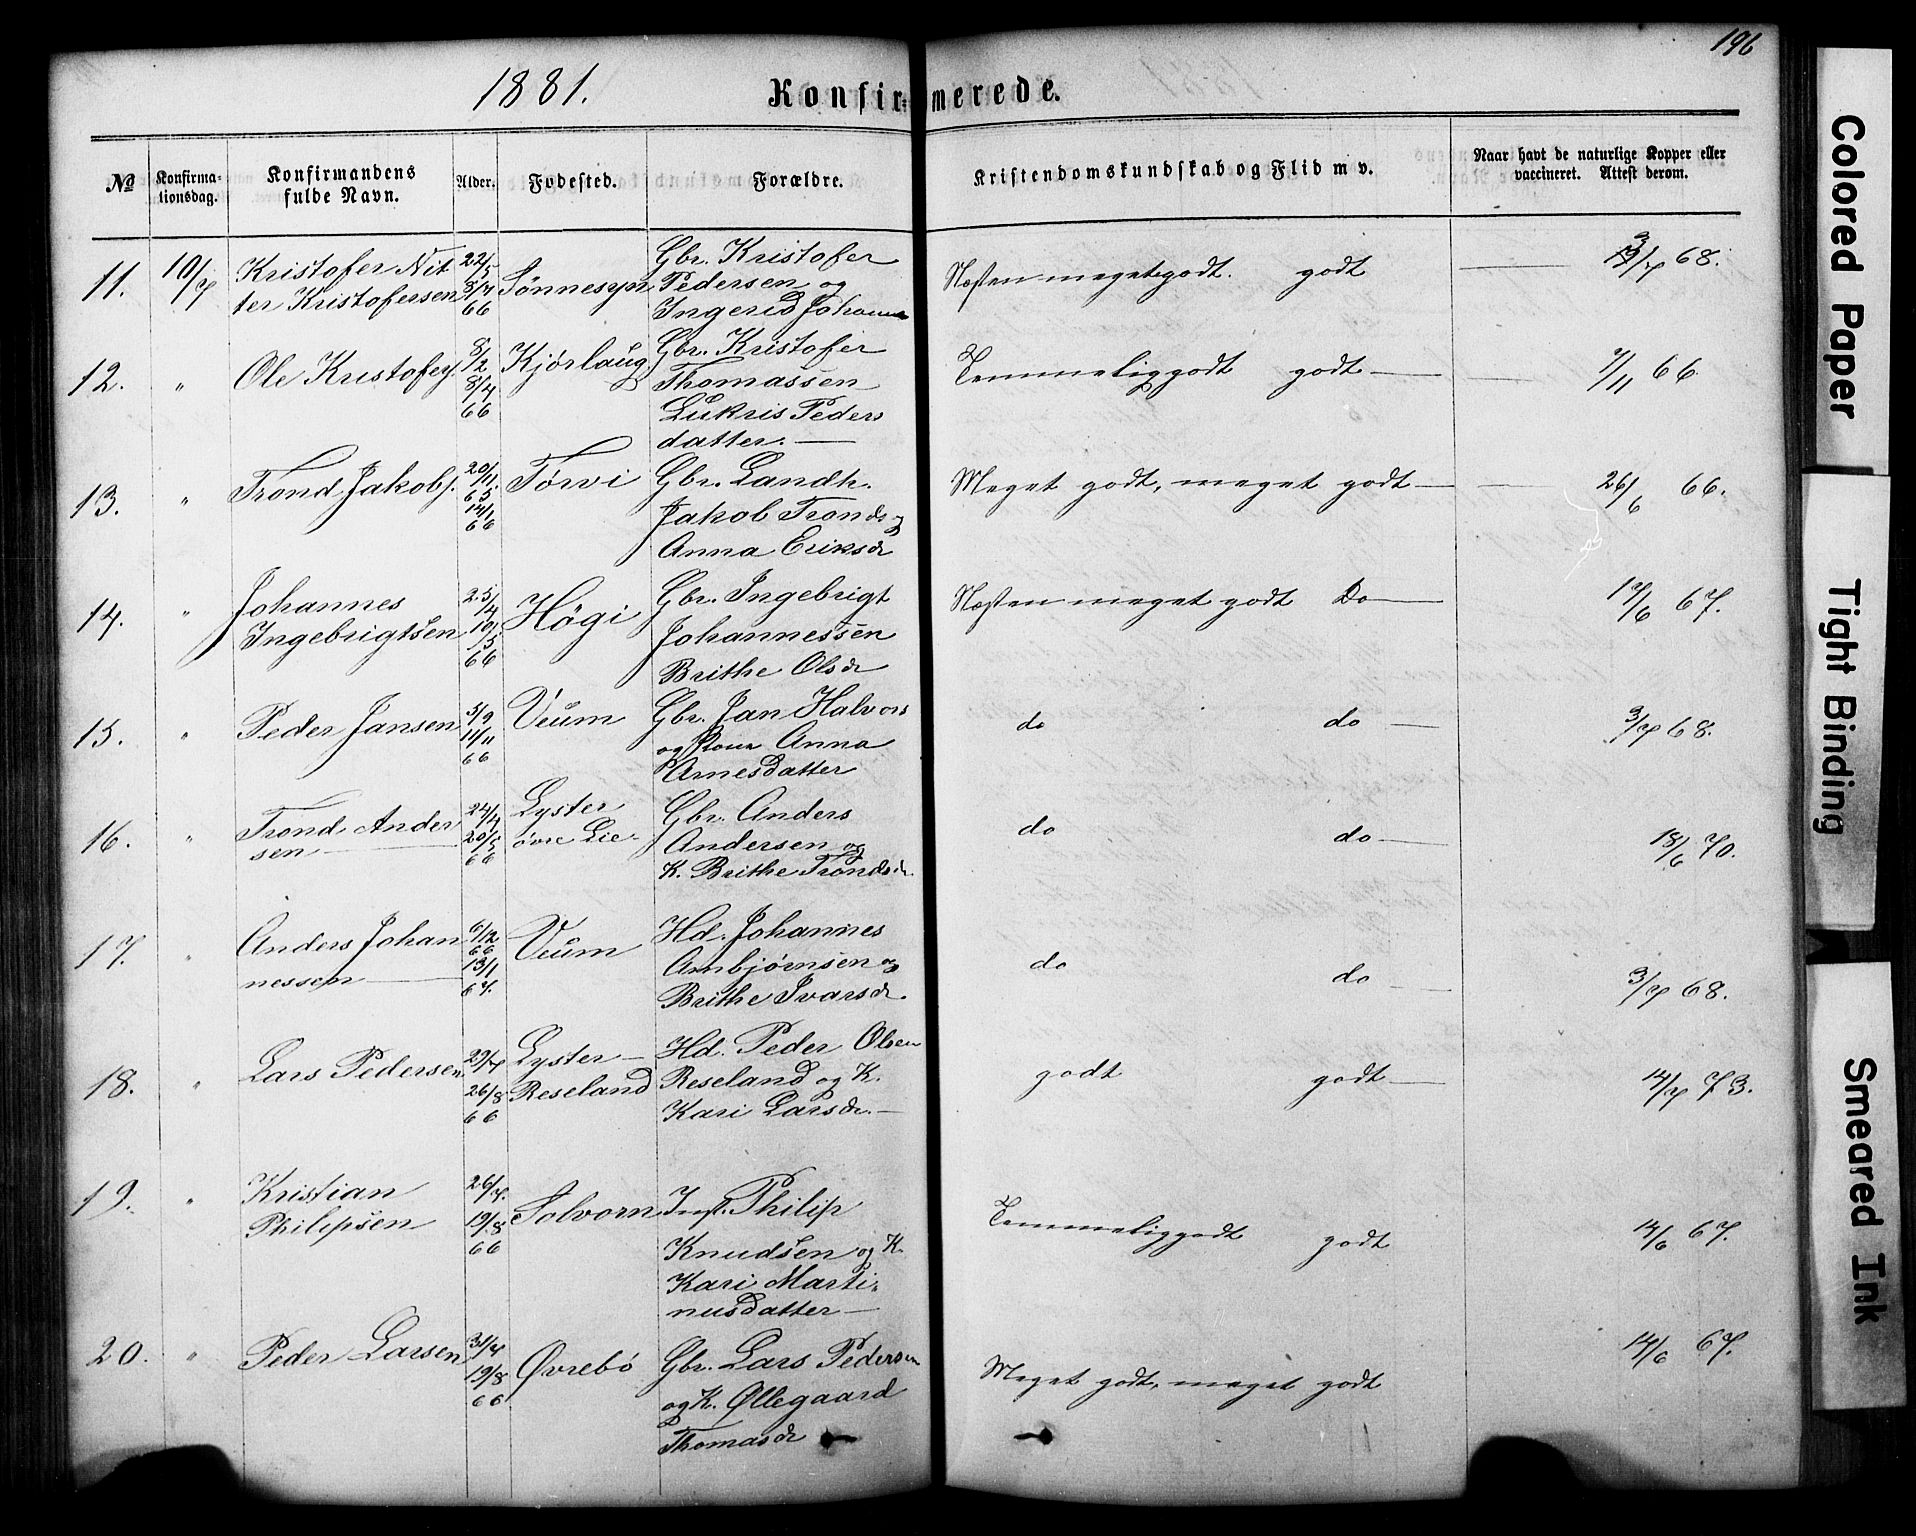 196
1881.
Konfirmerede.
№
Konfirma-
tionsdag.
Konfirmandens
fulde Navn.
Alder.
Fødested.
Forældre.
Kristendomskundskab og Flid m v.
Naar havt de naturlige Kopper eller
vaccineret. Attest derom.
11. 10/7 Kristofer Nit
ter Kristofersen
22/5
8/7
66
Sønnesyn
Gbr. Kristofer
Pedersen og
Ingerid
Næsten meget godt. godt — 3/7 68.
12. " Ole Kristofers.
8/2
8/4
66
Kjørlaug
Gbr. Kristofer
Thomassen
Lukris Peders
datter. —
Temmelig godt godt — 7/11 66
13. " Trond Jakobs.
20/11.
65
14/1
66
Tørvi
Gbr. Landh.
Jakob Tronds og
Anna Eriksdr
Meget godt, meget godt — 26/6 66.
14. " Johannes
Ingebrigtsen
25/4
10/5
66
Høgi
Gbr. Ingebrigt
Johannessen
Brithe Olsdr
Næsten meget godt Do — 17/6 67.
15. " Peder Jansen
5/9
11/11
66
Veum
Gbr. Jan Halvors
og Kona Anna
Arnesdatter
do do — 3/7 68.
16. " Trond Ander
sen —
24/4
20/5
66
Lyster
øvre Lie.
Gbr. Anders
Andersen og
K. Brithe Trondsdr.
do do — 18/6 70.
17. " Anders Johan
nessen —
6/12
66
13/1
67.
Veum
Hd. Johannes
Arnbjørnsen og
Brithe Ivarsdr.
do do — 3/7 68.
18. " Lars Pedersen
29/7
26/8
66
Lyster —
Reseland
Hd. Peder Olsen
Reseland og K.
Kari Larsdr. —
godt godt — 14/7 73.
19. " Kristian
Philipsen
26/7.
19/8
66
Solvorn
Inst. Philip
Knudsen og K.
Kari Marti-
nusdatter —
Temmelig godt godt 14/6 67.
20. " Peder Larsen
31/7
19/8
66.
Øvrebø
Gbr. Lars Pedersen
og K. Øllegaard
Thomasdr
Meget godt, meget godt 14/6 67.
Colored Paper
Tight Binding
Smeared Ink